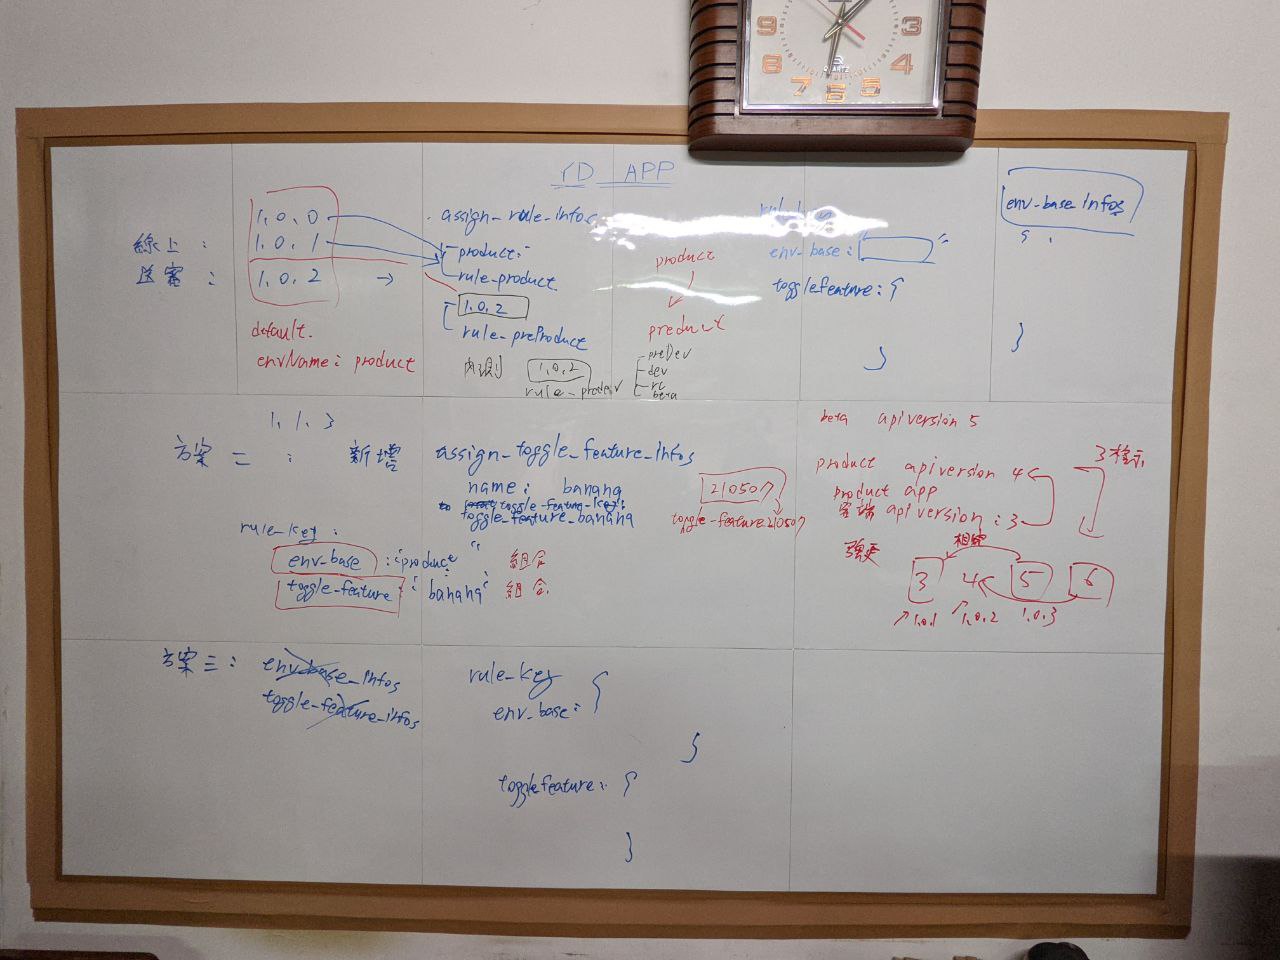 9
3
8
4
7
6
5
QUARTZ
rD APP
線上：
送審：
1.0.0
1.0.1
1.0.2
default.
envName: product
assign_rule_infos
product:
rule-product
1.0.2
rule-preProduct
內測
1.0.2
product
product
preDev
dev
rc
beta
env_base: " "
togglefeature: {
}
env-base_infos
}
1.1.3
方案二： 新增
assign_toggle_feature_infos
name: banana
toggle_feature_banana
210507
toggle-feature210507
rule-key:
env_base : "product" 組合
toggle_feature : "banana" 組合
beta api version 5
product api version 4
product app
客端 api version: 3
3 提示
強更
3 4 5 6
1.0.1 1.0.2 1.0.3
方案三：
env_base_infos
toggle-feature_infos
rule_key {
env_base:
}
togglefeature: {
}